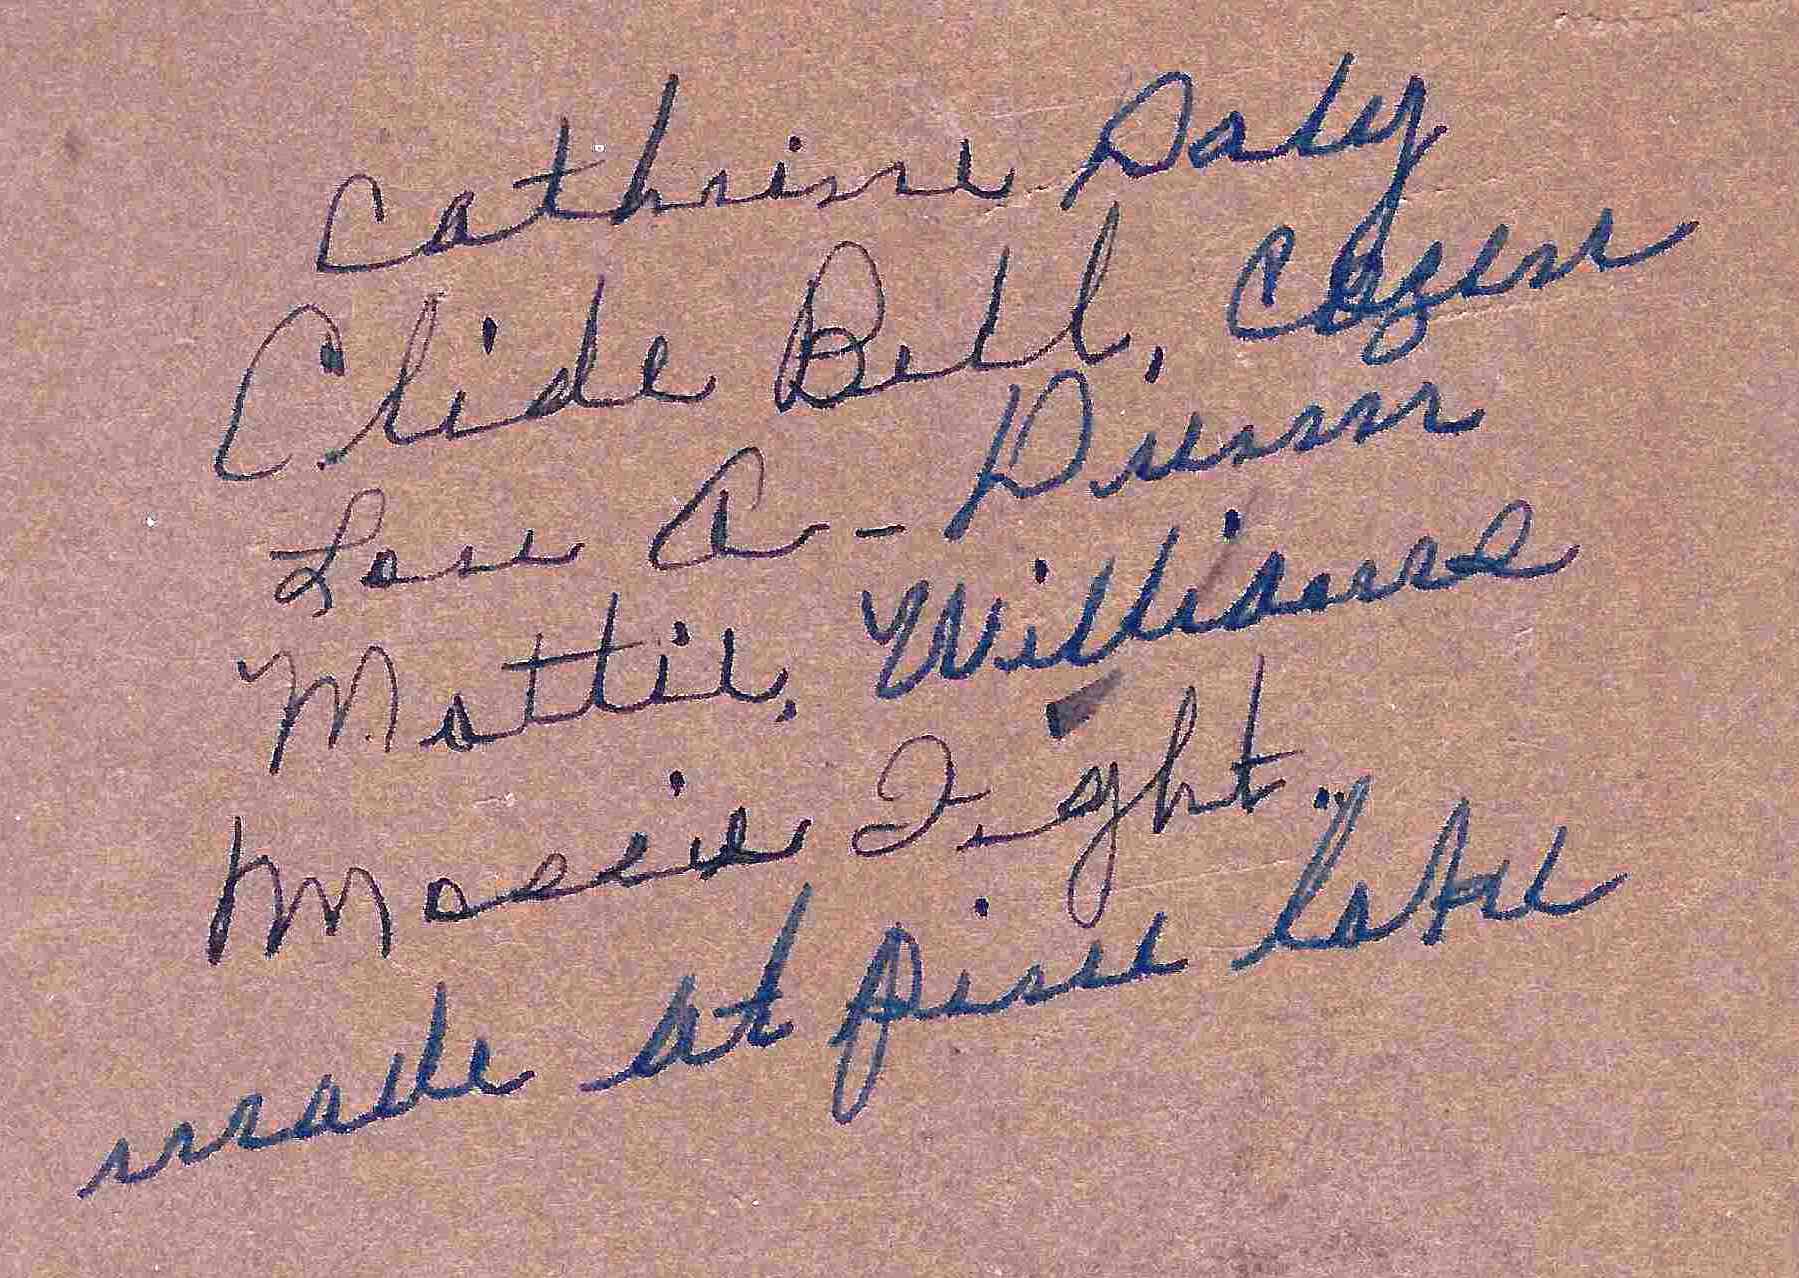 Cathrine Daly
Clide Bell, Cozene
Lou A - Dunn
Mattie, Williams
Massie Tight
made at pine lake